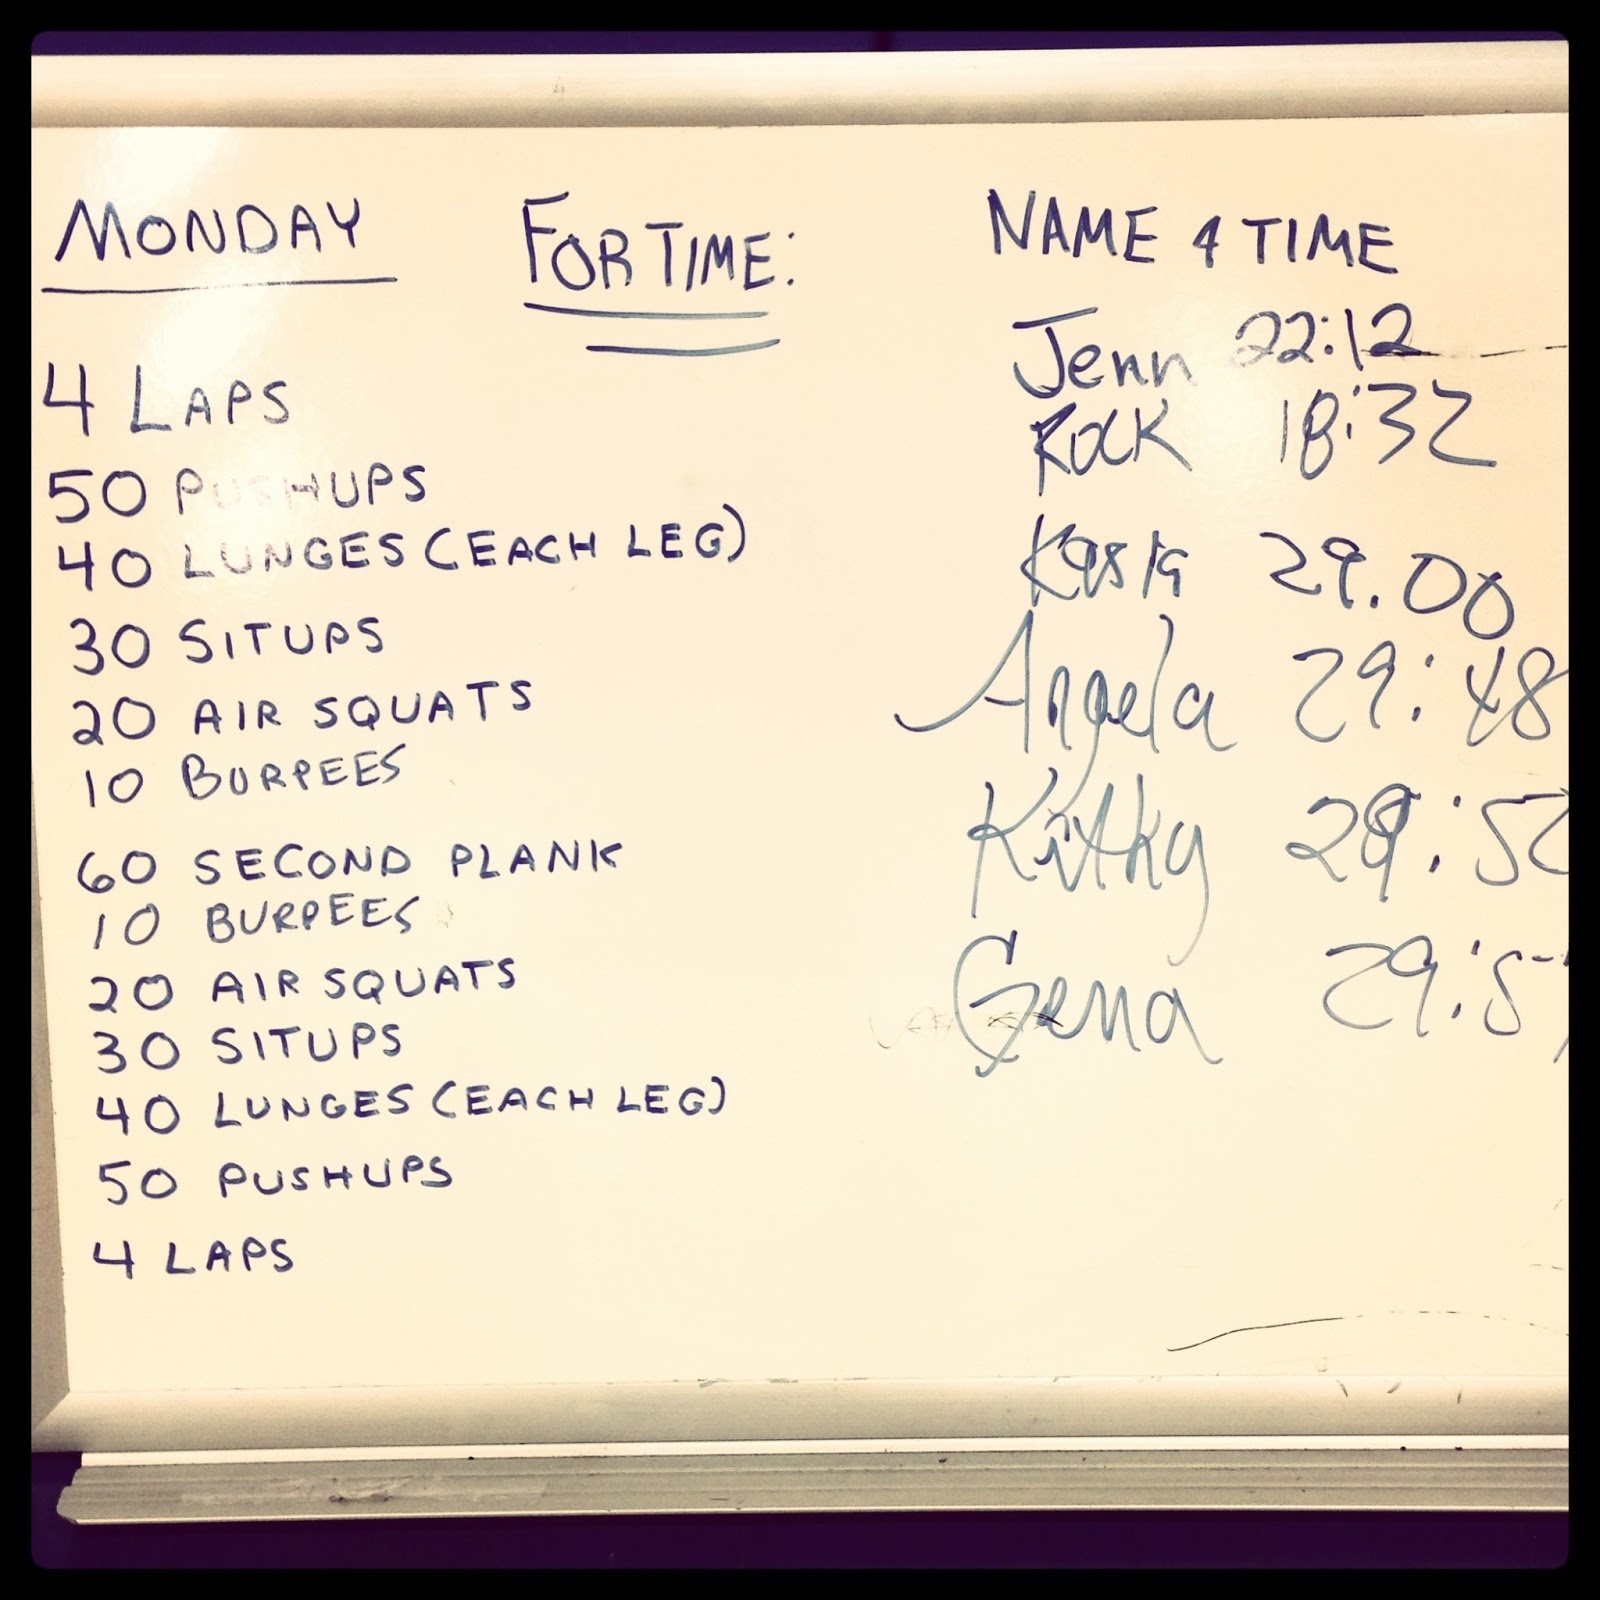 MONDAY
FOR TIME:
4 LAPS
50 PUSHUPS
40 LUNGES (EACH LEG)
30 SITUPS
20 AIR SQUATS
10 BURPEES
60 SECOND PLANK
10 BURPEES
20 AIR SQUATS
30 SITUPS
40 LUNGES (EACH LEG)
50 PUSHUPS
4 LAPS
NAME & TIME
Jenn 22:12
ROCK 18:32
Kasia 29.00
Angela 29:48
Kathy
Gena